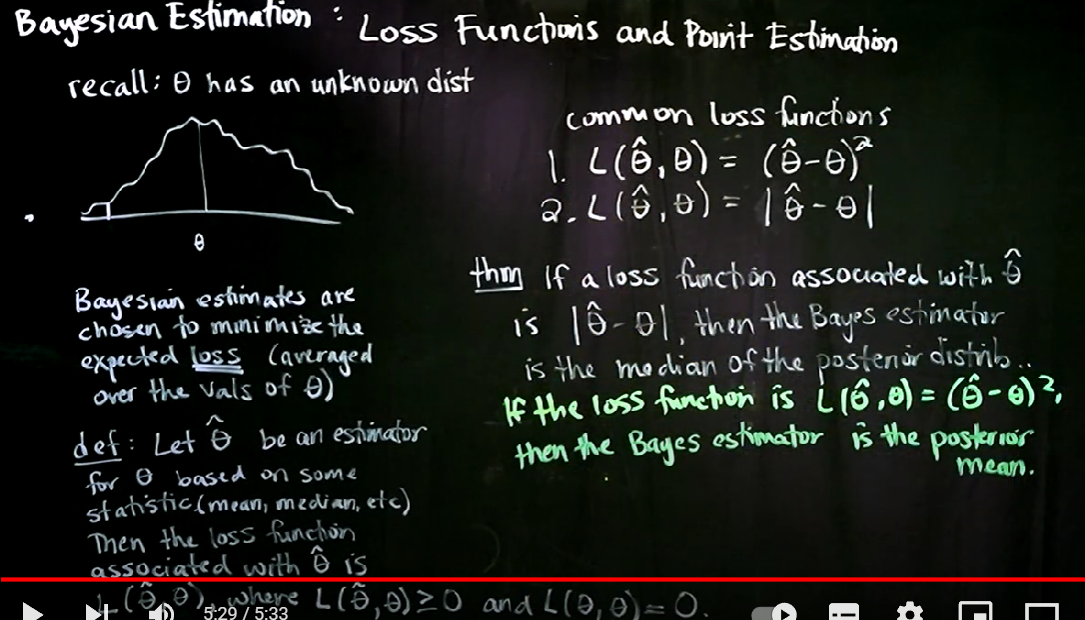 Bayesian Estimation : Loss Functions and Point Estimation
recall: θ has an unknown dist
θ
Bayesian estimates are
chosen to minimize the
expected loss (averaged
over the vals of θ)
def: Let θ̂ be an estimator
for θ based on some
statistic (mean, median, etc)
Then the loss function
associated with θ̂ is
L(θ̂,θ), where L(θ̂,θ)≥0 and L(θ,θ)=0.
common loss functions
1. L(θ̂,θ) = (θ̂-θ)²
2. L(θ̂,θ) = |θ̂-θ|
thm If a loss function associated with θ̂
is |θ̂-θ|, then the Bayes estimator
is the median of the posterior distrib..
If the loss function is L(θ̂,θ) = (θ̂-θ)²,
then the Bayes estimator is the posterior
mean.
5:29 / 5:33